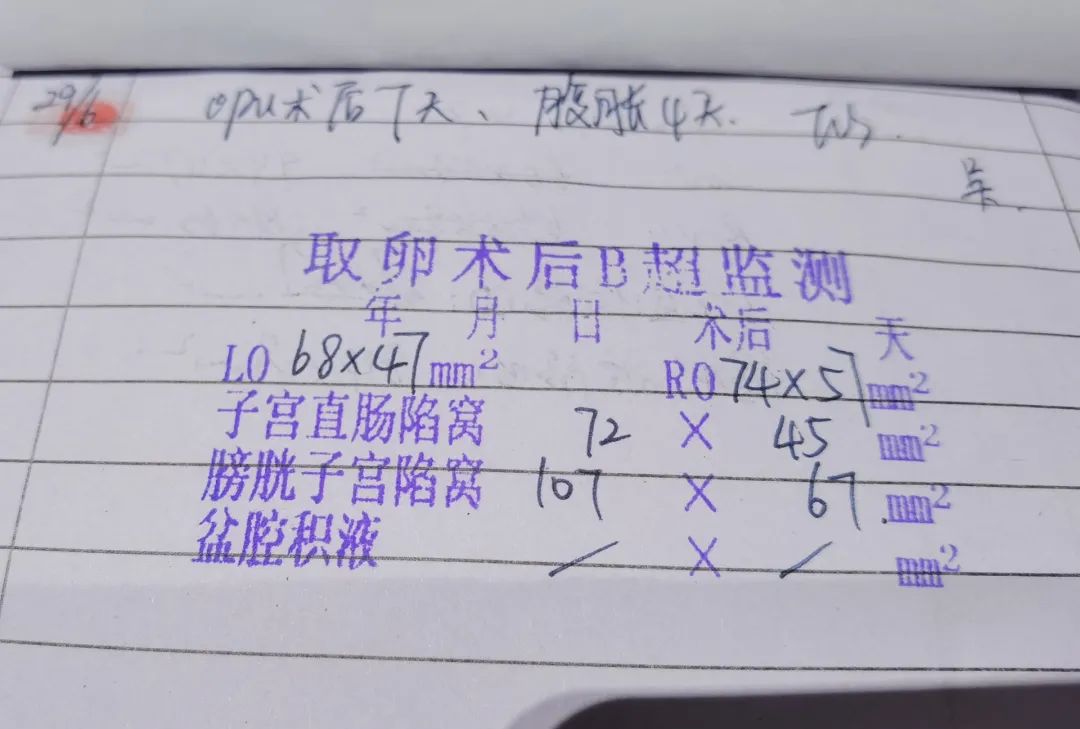 29/6 OPU术后7天、腹胀4天. TVS.
取卵术后B超监测
年 月 日 术后 天
LO 68×47mm² RO 74×57mm²
子宫直肠陷窝 72 × 45 mm²
膀胱子宫陷窝 107 × 67 mm²
盆腔积液 / × / mm²